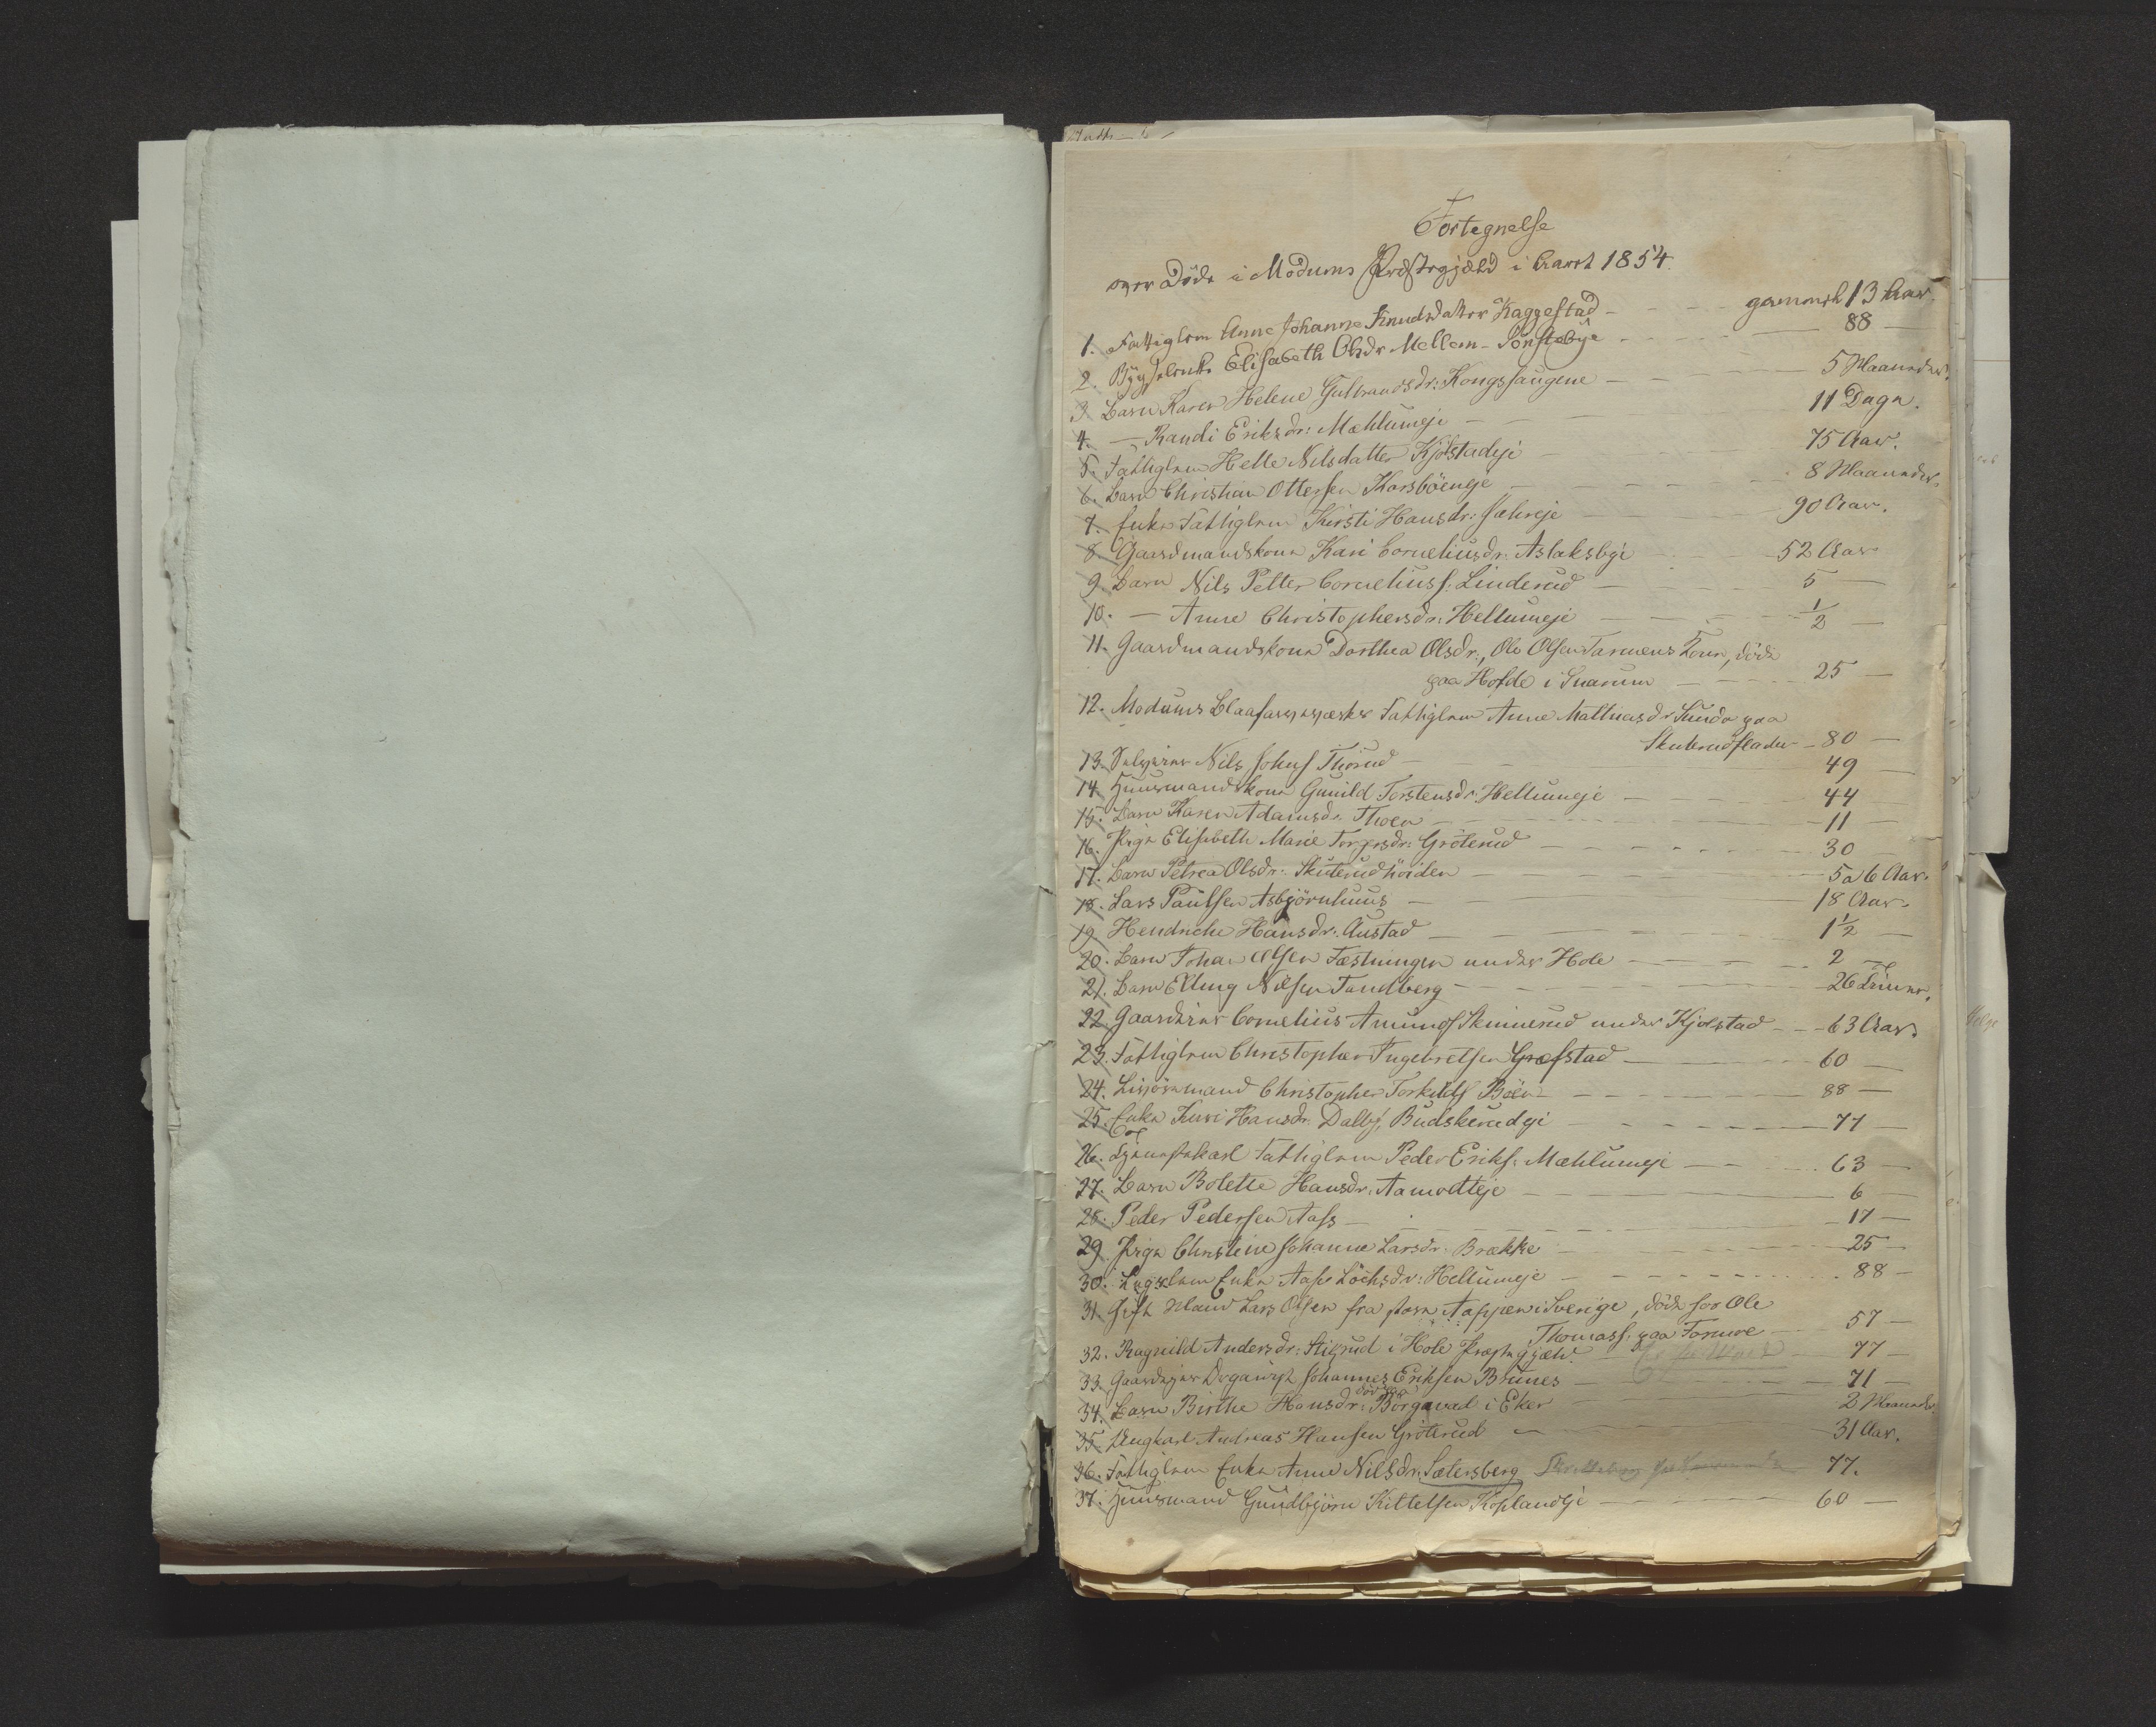 Fortegnelse
over Døde i Modums Præstegjæld i Aaret 1854.
1. Fattiglem Anne Johanne Knudsdatter Kaggestad - gammel 13 Aar.
2. Elisabeth Olsdr Mellem-Sönstebye - 88 -
3. Barn Karen Helene Gulbrandsdr: Kongssaugene - 5 Maaneder.
4. - Randi Eriksdr: Mæhlumeje - 11 Dage.
5. Fattiglem Helle Nilsdatter Kjölstadeje - 75 Aar.
6. Barn Christian Ottersen Korsböeneje - 8 Maaneder.
7. Enke Fattiglem Kirsti Hansdr: - 90 Aar.
8. Gaardmandskone Kari Corneliusdr. Aslaksbye - 52 Aar
9. Barn Nils Petter Corneliuss. Linderud - 5 -
10. - Anne Christophersdr: Hellumeje - 1/2 -
11. Gaardmandskone Dorthea Olsdr., Ole Olsen Kone, döde
paa Hofde i Snarum - 25 -
12. Modums Blaafarveværks Fattiglem Anne Mathiasdr Sunde paa
Skuterudflaten - 80 -
13. Nils Johns Thorud - 49 -
14. Huusmandskone Gunild Torstensdr. Hellumeje - 44 -
15. Barn Karen Adamsdr. Thoen - 11 -
16. Pige Elisabeth Marie Torgersdr: Gröterud - 30
17. Barn Petrea Olsdr. Skuterudhöiden - 5 a 6 Aar.
18. Lars Paulsen Asbjörnhuus - 18 Aar.
19. Hendriche Hansdr. Austad - 1 1/2 -
20. Barn Johan Olsen Fæstningen under Hole - 2 -
21. Barn Elling Nilsen Tandberg - 26 Timer.
22. Gaardeier Cornelius Amunds Skinnerud under Kjölstad - 63 Aar.
23. Fattiglem Christopher Ingebretsen Græfstad - 60 -
24. Christopher Torkilds Böen - 88 -
25. Enke Kari Hansdr. Dalby, Buskerudeje - 77 -
26. og Tjenestekarl Fattiglem Peder Eriks. Mæhlumeje - 63 -
27. Barn Bolette Hansdr. Aamodteje - 6 -
28. Peder Pedersen Aass - 17 -
29. Pige Christine Johanne Larsdr. Brække - 25 -
30. Lægslem Enke Aase Hellumeje - 88 -
31. Gift Mand Lars Olsen fra i Sverige, döde hos Ole
Thomass. paa - 57 -
32. Ragnild Andersdr: i Hole Præstegjæld - 77 -
33. Gaardejer Johannes Eriksen Brunes - 71 -
34. Barn Birthe Hansdr: i Eker - 2 Maaneder.
35. Ungkarl Andreas Hansen Gröterud - 31 Aar.
36. Fattiglem Enke Anne Nilsdr. Sætersberg - 77.
37. Huusmand Gundbjörn Kittelsen Koplandeje - 60 -